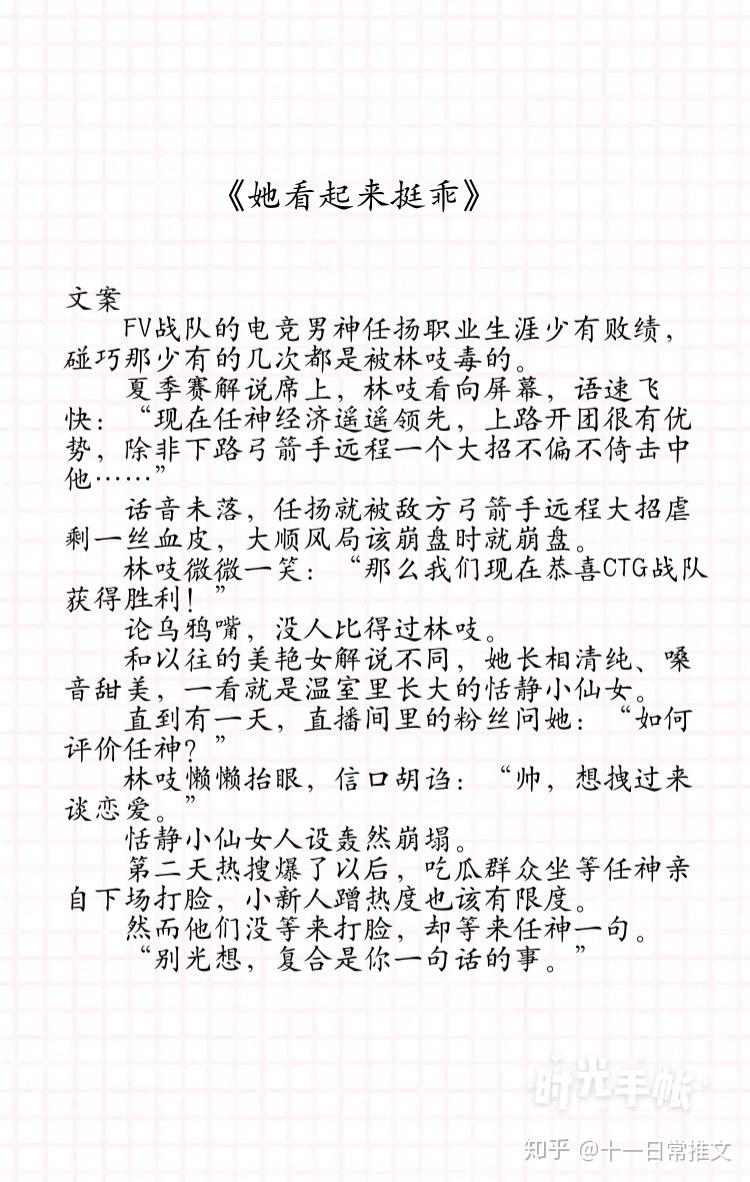 《她看起来挺乖》
文案
FV战队的电竞男神任扬职业生涯少有败绩，
碰巧那少有的几次都是被林吱毒的。
夏季赛解说席上，林吱看向屏幕，语速飞
快：“现在任神经济遥遥领先，上路开团很有优
势，除非下路弓箭手远程一个大招不偏不倚击中
他……”
话音未落，任扬就被敌方弓箭手远程大招虐
剩一丝血皮，大顺风局该崩盘时就崩盘。
林吱微微一笑：“那么我们现在恭喜CTG战队
获得胜利！”
论乌鸦嘴，没人比得过林吱。
和以往的美艳女解说不同，她长相清纯、嗓
音甜美，一看就是温室里长大的恬静小仙女。
直到有一天，直播间里的粉丝问她：“如何
评价任神？”
林吱懒懒抬眼，信口胡诌：“帅，想拽过来
谈恋爱。”
恬静小仙女人设轰然崩塌。
第二天热搜爆了以后，吃瓜群众坐等任神亲
自下场打脸，小新人蹭热度也该有限度。
然而他们没等来打脸，却等来任神一句。
“别光想，复合是你一句话的事。”
时光手帐
知乎 @十一日常推文